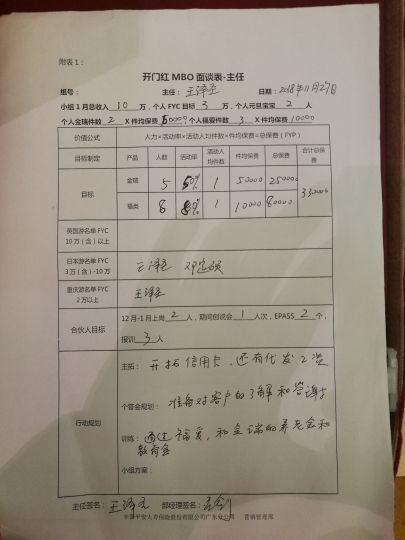 附表1：
开门红 MBO 面谈表-主任
组号： 主任：王泽 日期：2018年11月27日
小组1月总收入 10 万，个人 FYC 目标 3 万，个人元旦宝宝 2 人
个人金瑞件数 2 X 件均保费 0000 个人福爱件数 3 X 件均保费 10000
价值公式 人力×活动率×活动人均件数×件均保费=总保费（FYP）
目标制定 产品 人数 活动率 活动人均件数 件均保费 总保费 合计总保费
目标 金瑞 5 50% 1 50000 250000 330000
福类 8 1 10000 80000
英国游名单 FYC 10万（含）以上
日本游名单 FYC 3万（含）-10万 王泽 邓
重庆游名单 FYC 2万以上 王泽
合伙人目标 12月-1月上岗 2 人，期间创说会 1 人次，EPASS 2 个，
报训 3 人
行动规划 主拓：开拓信用卡，还有代发2次
个管会规划：准备对客户的了解和答谢
训练：通过福爱，和金瑞的养老金和
教育金
小组方案：
主任签名：王泽 部经理签名：
中国平安人寿保险股份有限公司广东分公司 营销管理部